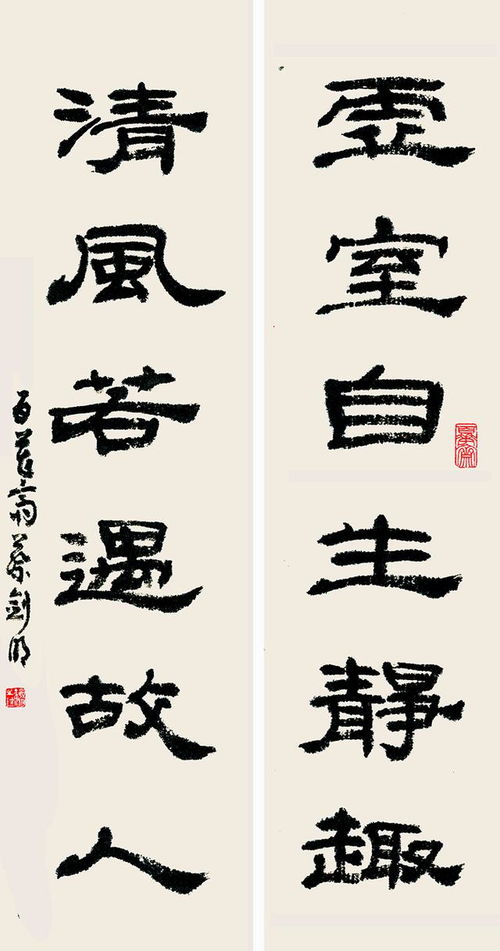 虛室自生靜趣
清風若遇故人
蔡劍明